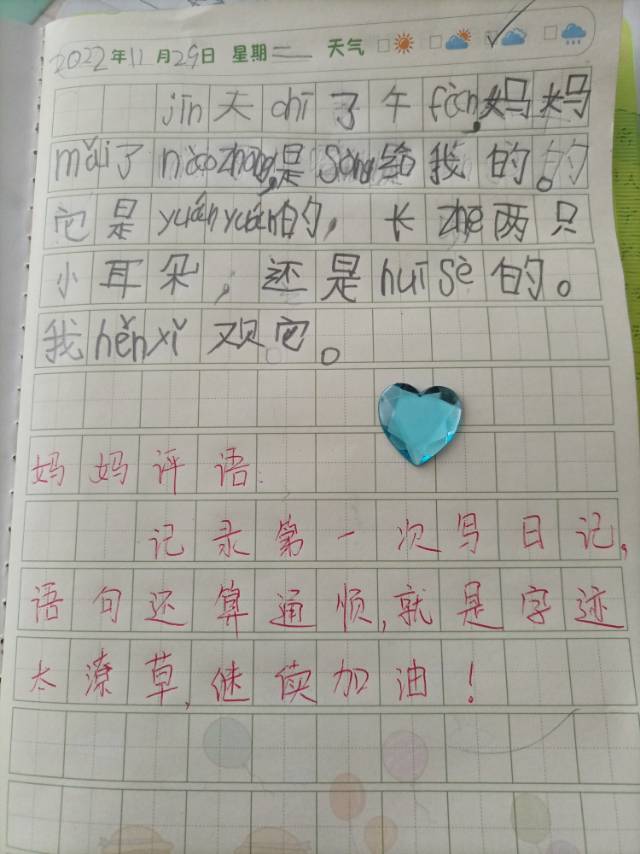 2022年11月29日 星期二 天气
jīn天chī了午fàn,妈妈
mǎi了nàozhōng,是sòng给我的。的
它是yuányuán的,长zhe两只
小耳朵,还是huīsè的。
我hěnxǐ欢它。
妈妈评语:
记录第一次写日记,
语句还算通顺,就是字迹
太潦草,继续加油!